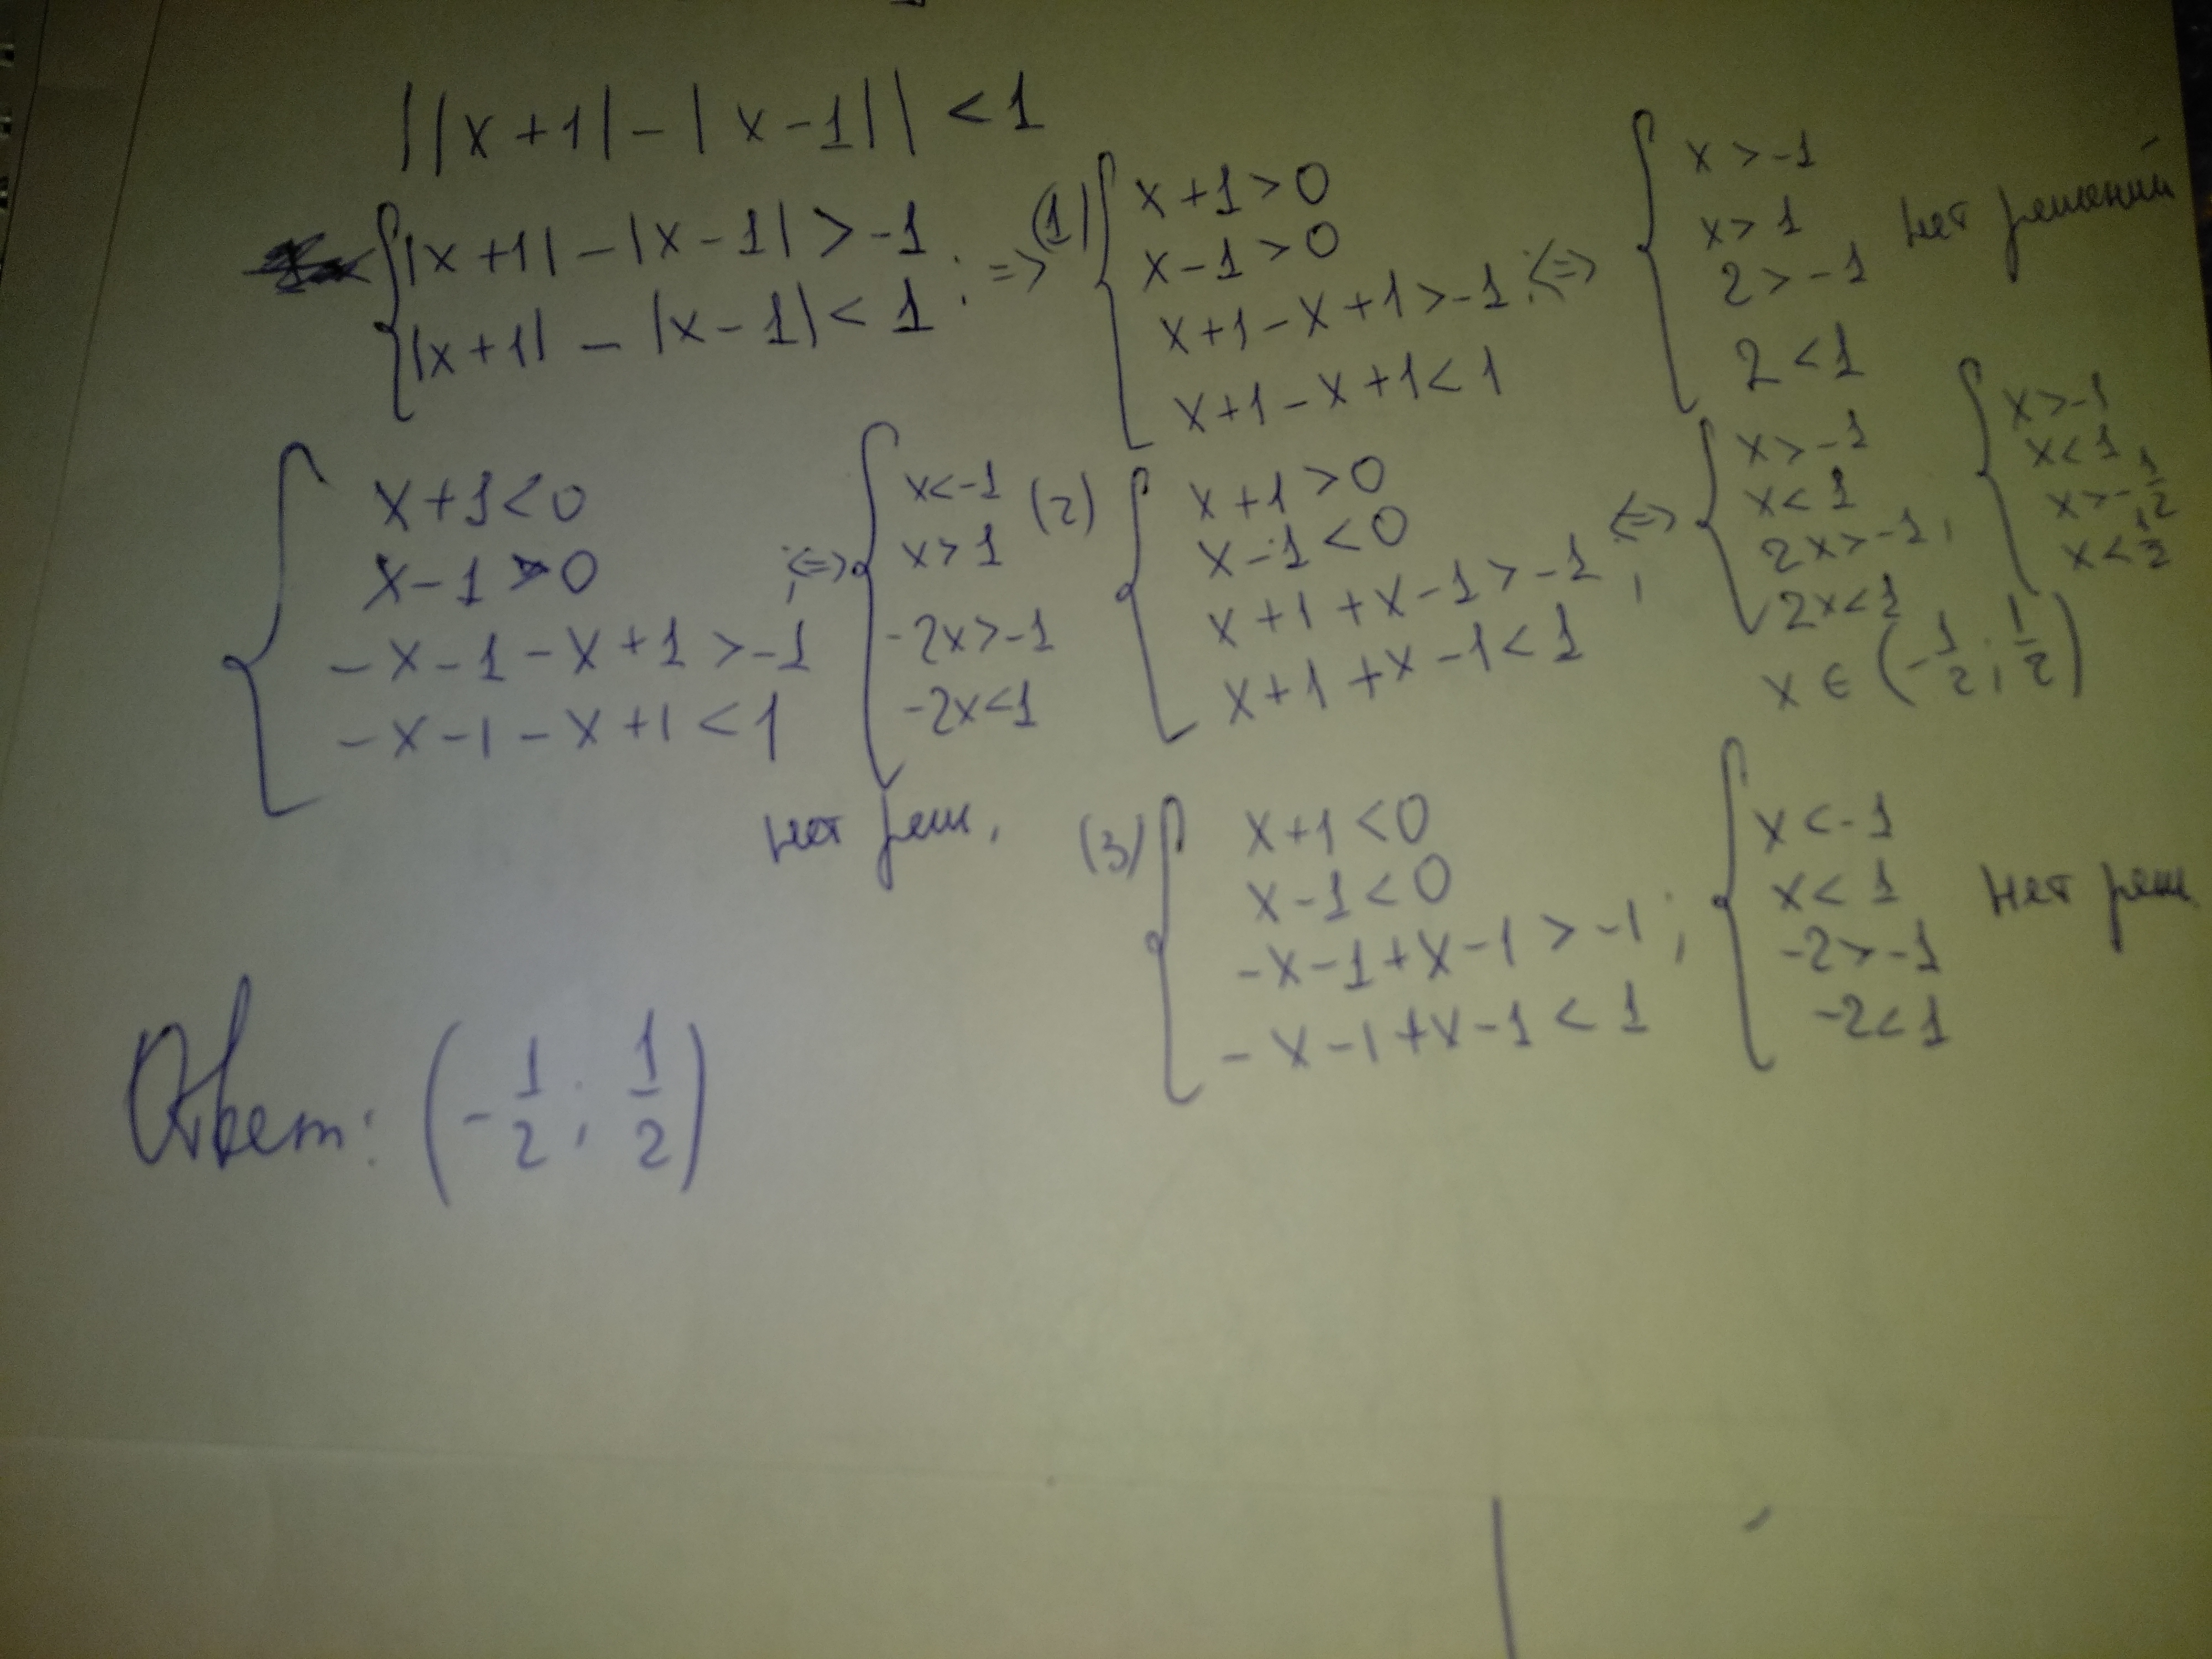 ||x+1|-|x-1||<1
|x+1|-|x-1|>-1
|x+1|-|x-1|<1 ; =>
(1) x+1>0
x-1>0
x+1-x+1>-1 ; <=>
x+1-x+1<1
x>-1
x>1 нет решений
2>-1
2<1
x+1<0
x-1>0
-x-1-x+1>-1
-x-1-x+1<1
; <=>
x<-1
x>1
-2x>-1
-2x<1
нет реш.
(2) x+1>0
x-1<0
x+1+x-1>-1 ; <=>
x+1+x-1<1
x>-1
x<1
2x>-1 ;
2x<1
x>-1
x<1
x>-1/2
x<1/2
x ∈ (-1/2 ; 1/2)
(3) x+1<0
x-1<0
-x-1+x-1>-1 ;
-x-1+x-1<1
x<-1
x<1 нет реш.
-2>-1
-2<1
Ответ: (-1/2 ; 1/2)